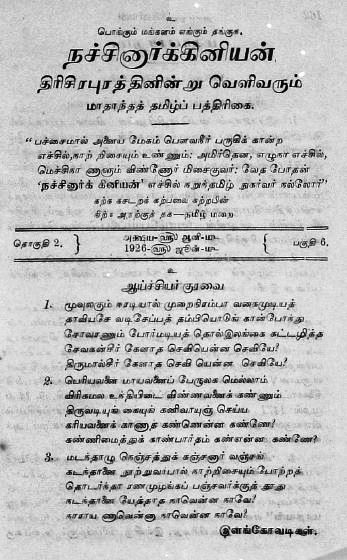 உ
பொங்கும் மங்களம் எங்கும் தங்குக.
நச்சினார்க்கினியன்
திரிசிரபுரத்தினின்று வெளிவரும்
மாதாந்தத் தமிழ்ப் பத்திரிகை.
"பச்சைமால் அனைய மேகம் பௌவநீர் பருகிக் கான்ற
எச்சில், நாற் றிசையும் உண்ணும்; அமிர்தென, எழுகா எச்சில்,
மெச்சிகா ணாளும் விண்ணோர் மிசைகுவர்; வேத போதன்
'நச்சினார்க் கினியன்' எச்சில் கறுந்தமிழ் நுகர்வர் நல்லோர்"
கற்க கசடறக் கற்பவை கற்றபின்
நிற்க அதற்குத் தக—தமிழ் மறை
தொகுதி 2, } அக்ஷய-௵ ஆனி-௴ { பகுதி 6,
1926-௵ ஜூன்-௴
உ
ஆய்ச்சியர் குரவை
1. மூவுலகும் ஈரடியால் முறைநிரம்பா வகைமுடியத்
தாவியசே வடிசேப்பத் தம்பியொடுங் கான்போந்து
சோவரணும் போர்மடியத் தொல்இலங்கை கட்டழித்த
சேவகன்சீர் கேளாத செவியென்ன செவியே?
திருமால்சீர் கேளாத செவி யென்ன செவியே?
2. பெரியவனை மாயவனைப் பேருலக மெல்லாம்
விரிகமல உந்தியுடை விண்ணவனைக் கண்ணுந்
திருவடியுங் கையும் கனிவாயுஞ் செய்ய
கரியவனைக் காணாத கண்ணென்ன கண்ணே?
கண்ணிமைத்துக் காண்பார்தம் கண்என்ன கண்ணே?
3. மடந்தாழு நெஞ்சத்துக் கஞ்சனார் வஞ்சங்
கடந்தானை நூற்றுவர்பால் நாற்றிசையும் போற்றத்
தொடர்ந்தா ரணமுழங்கப் பஞ்சவர்க்குத் தூது
நடந்தானை யேத்தாத நாவென்ன நாவே?
நாராய ணாவென்னா நாவென்ன நாவே?
இளங்கோவடிகள்.